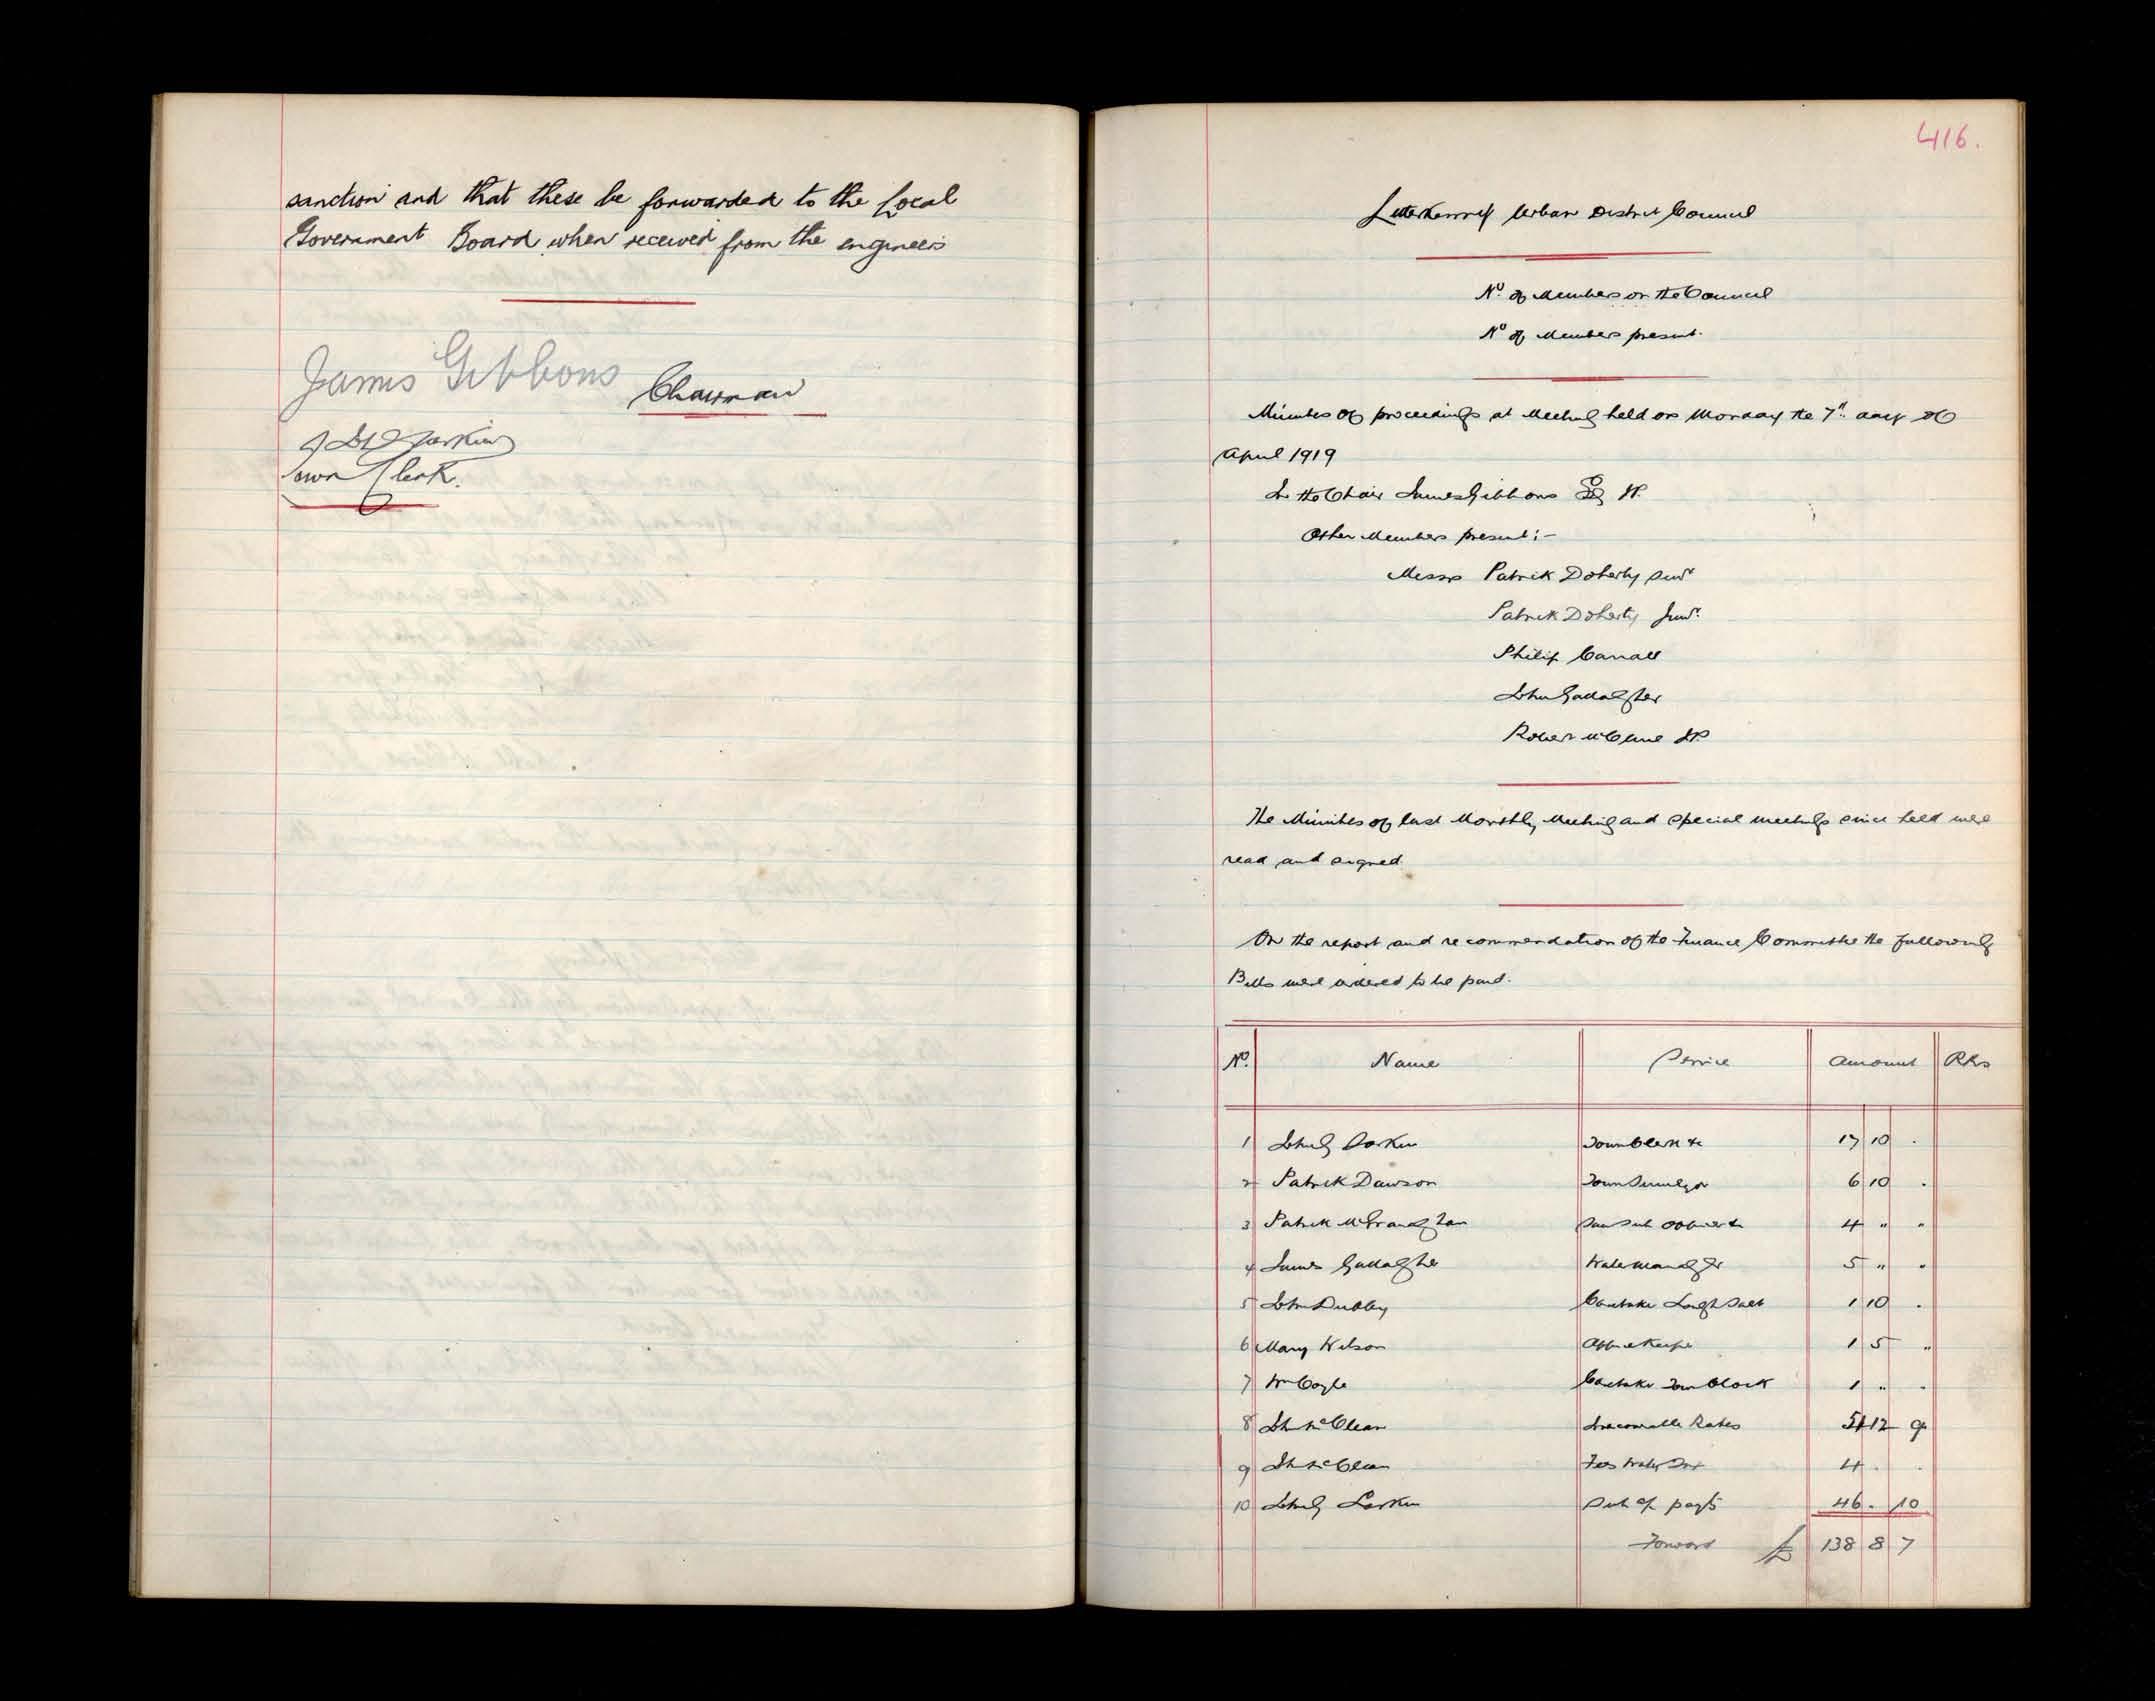 sanction and that these be forwarded to the Local
Government Board when received from the engineers
James Gibbons Chairman
Larkin
Town Clerk.
416.
Letterkenny Urban District Council
No. of Members on the Council
No of Members present.
Minutes of proceedings at Meeting held on Monday the 7" day of
April 1919
In the Chair James Gibbons Esq JP.
Other Members present:-
Messrs Patrick Doherty Senr
Patrick Doherty Junr.
Philip
John Gallagher
Robert McClure JP
The Minutes of last Monthly Meeting and special meetings since held were
read and signed.
On the report and recommendation of the Finance Committee the following
Bills were ordered to be paid.
No. Name Service Amount Rks
1 John G Larkin Town Clerk &c 17 10 .
2 Patrick Dawson Town Surveyor 6 10 .
3 Patrick San Sub Officer &c 4 " "
4 James Gallagher Water Manager 5 " "
5 John Caretaker Lough Salt 1 10 .
6 Mary Wilson Office Keeper 1 5 "
7 Wm Coyle Caretaker Town Clock 1 " .
8 John McClean Irrecoverable Rates 51 12 9
9 John McClean Fees 4 . .
10 John G Larkin Sub of payts 46 . 10
Forward £ 138 8 7